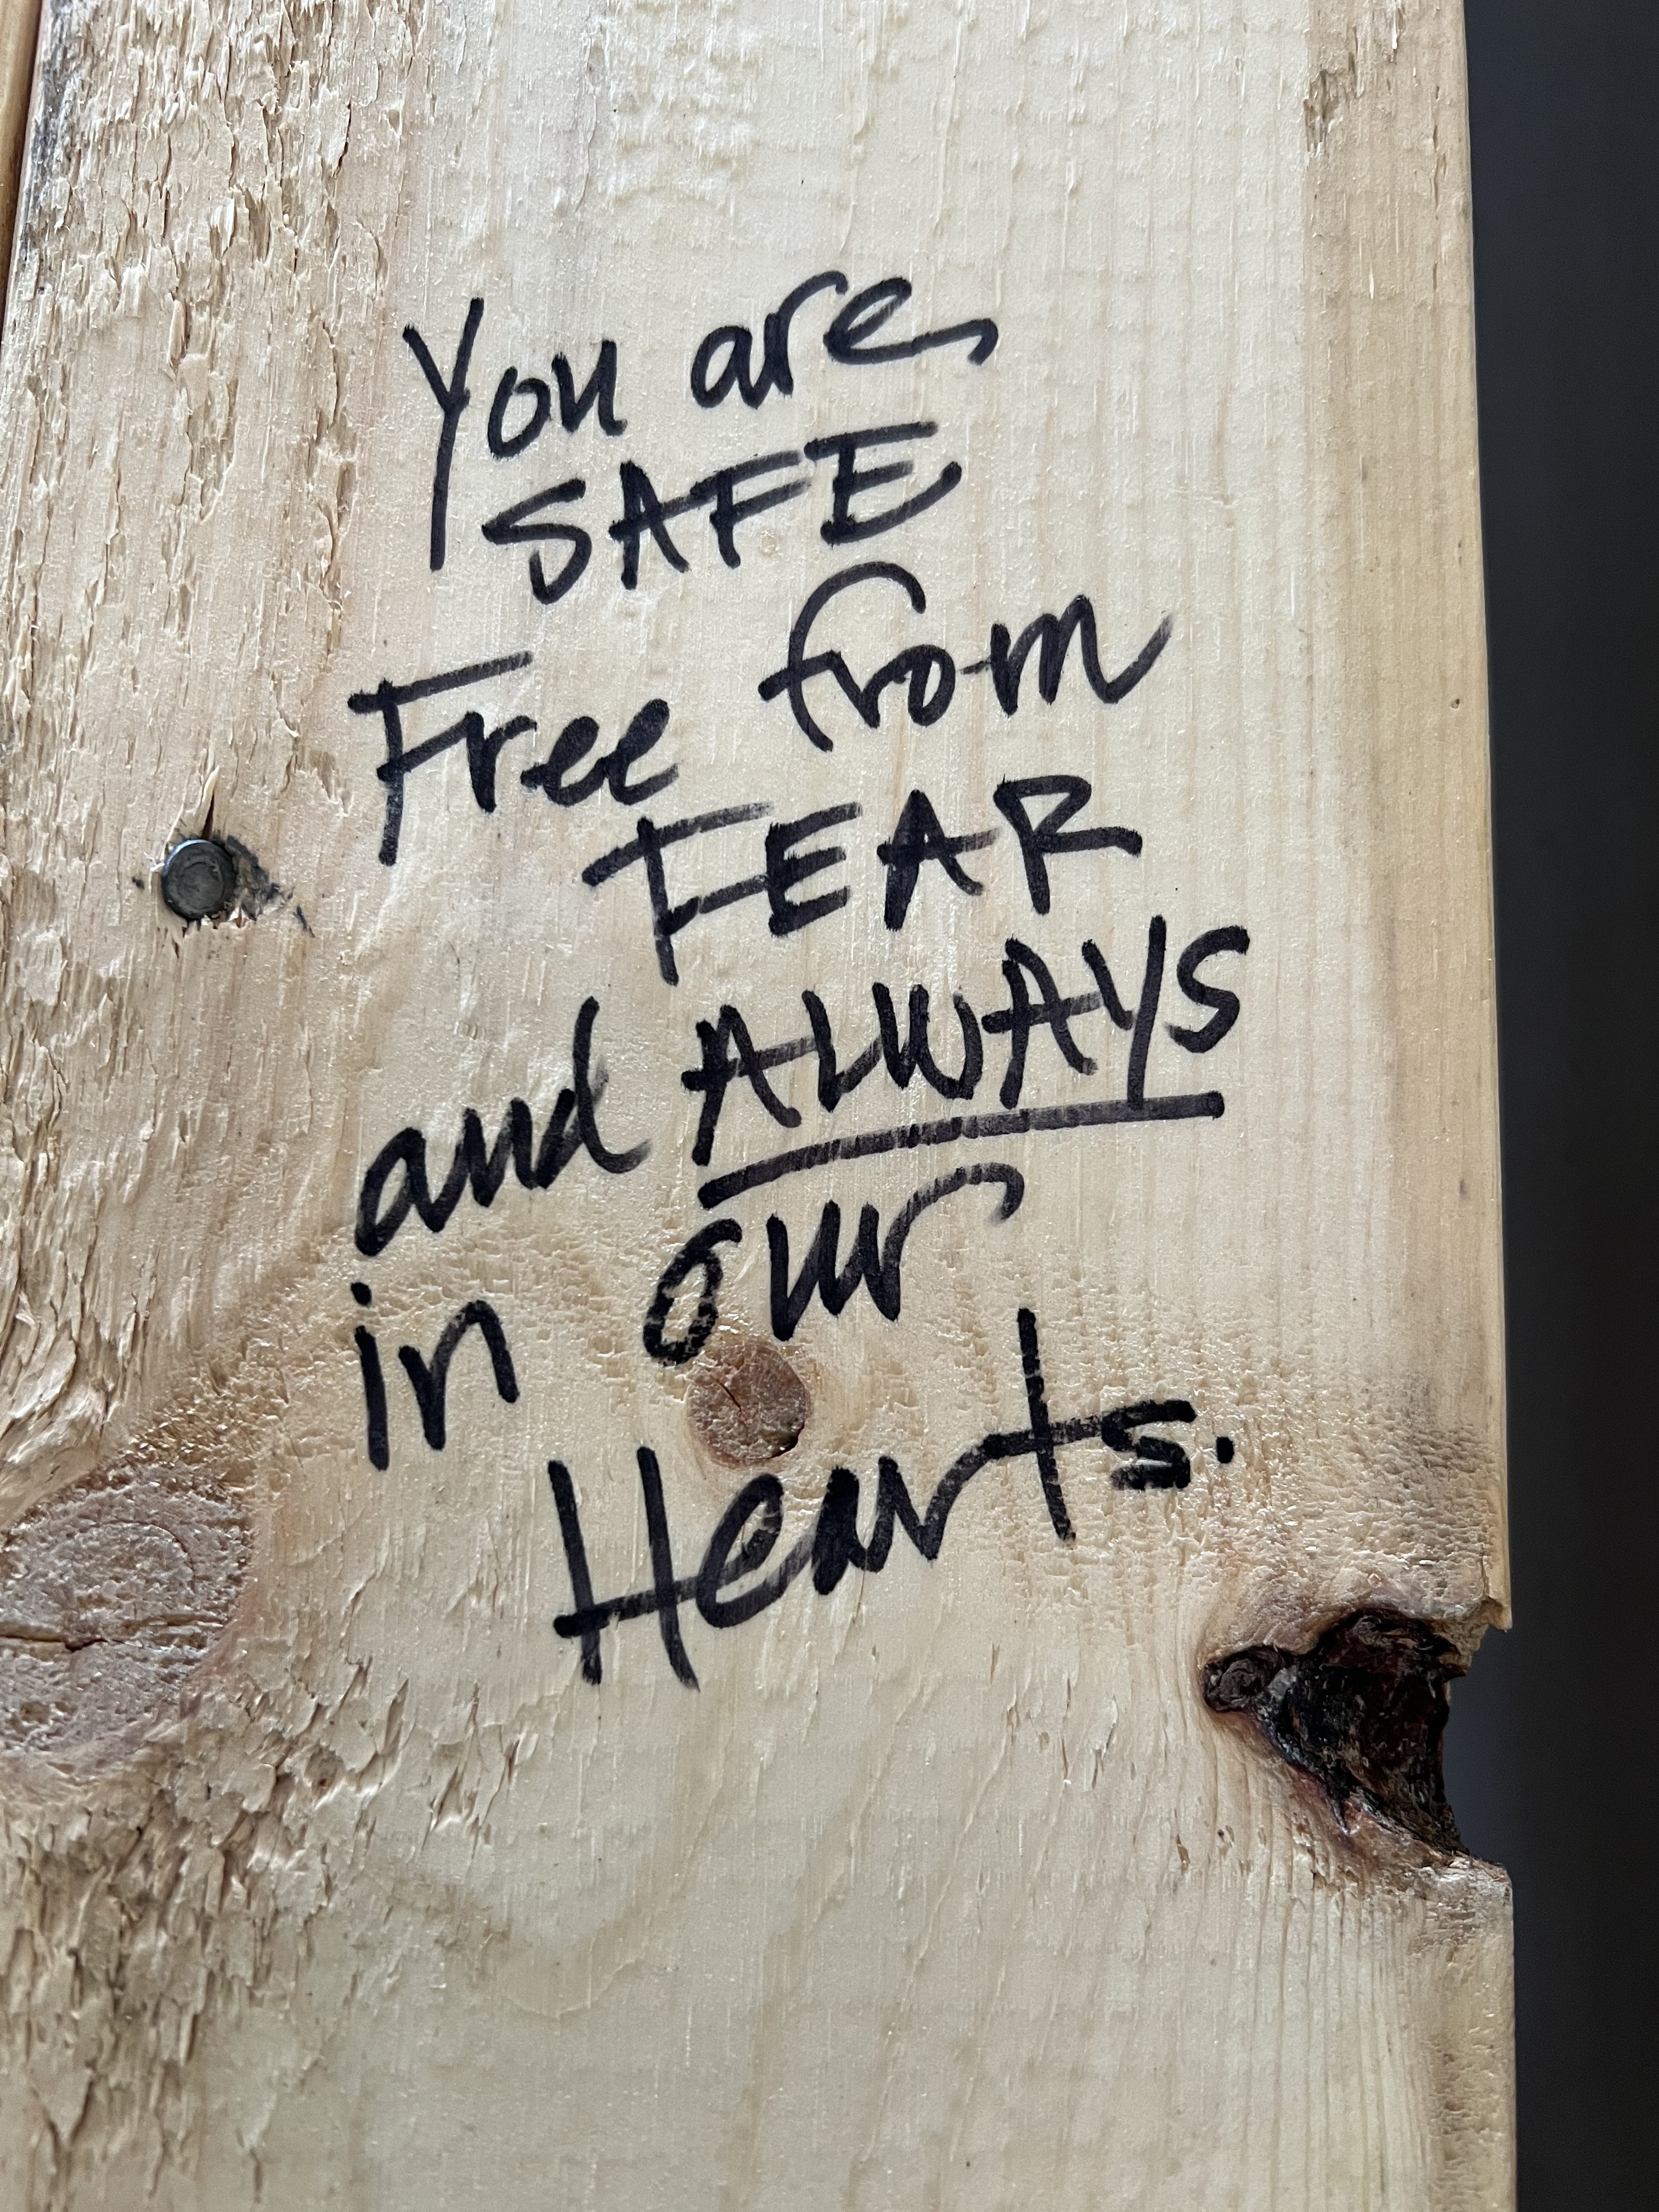 You are
SAFE
Free from
FEAR
and ALWAYS
in our
Hearts.